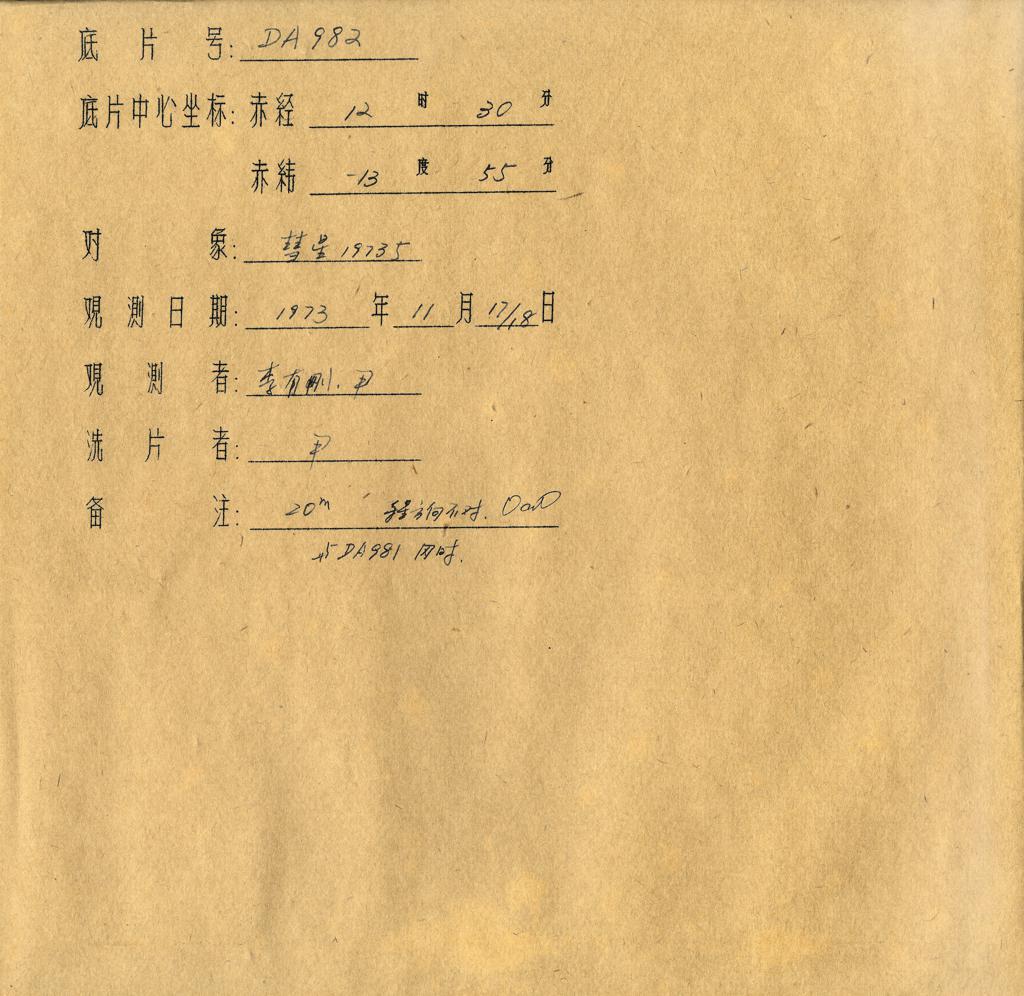 底片号: DA982
底片中心坐标: 赤经 12 时 30 分
赤纬 -13 度 55 分
对象: 彗星 19735
观测日期: 1973 年 11 月 17/18 日
观测者: 李有刚. 尹
洗片者: 尹
备注: 20m 方向不对. OaO
与DA981 同时.